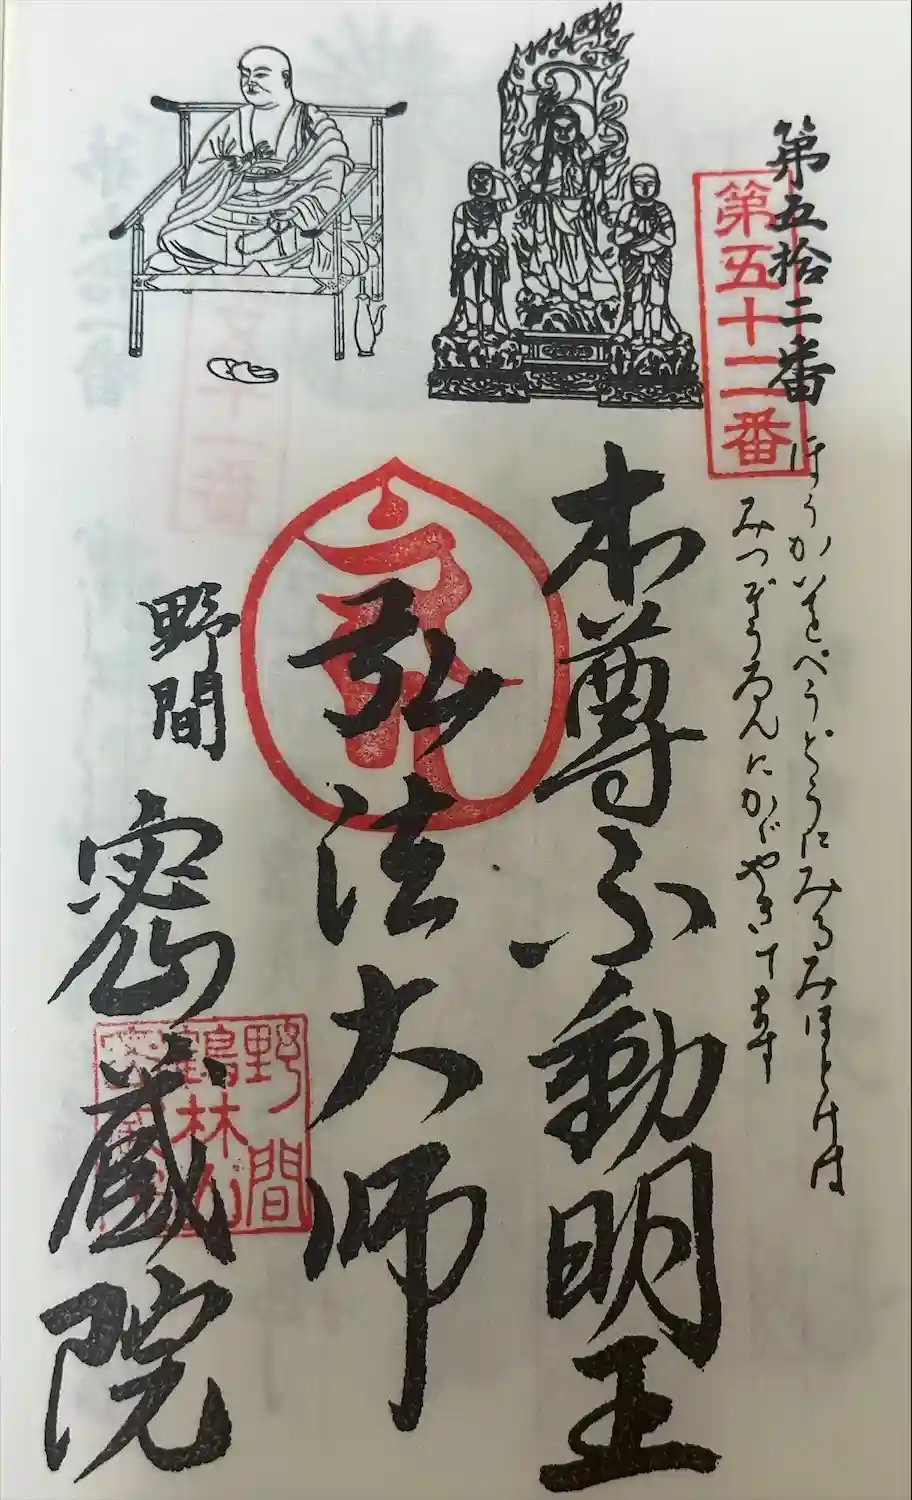 第五拾二番
第五十二番
ほうかいをべうどうにみるみほとけは
みつぞうゐんにかゞやきてます
本尊不動明王
弘法大師
野間
密蔵院
野間
鶴林山